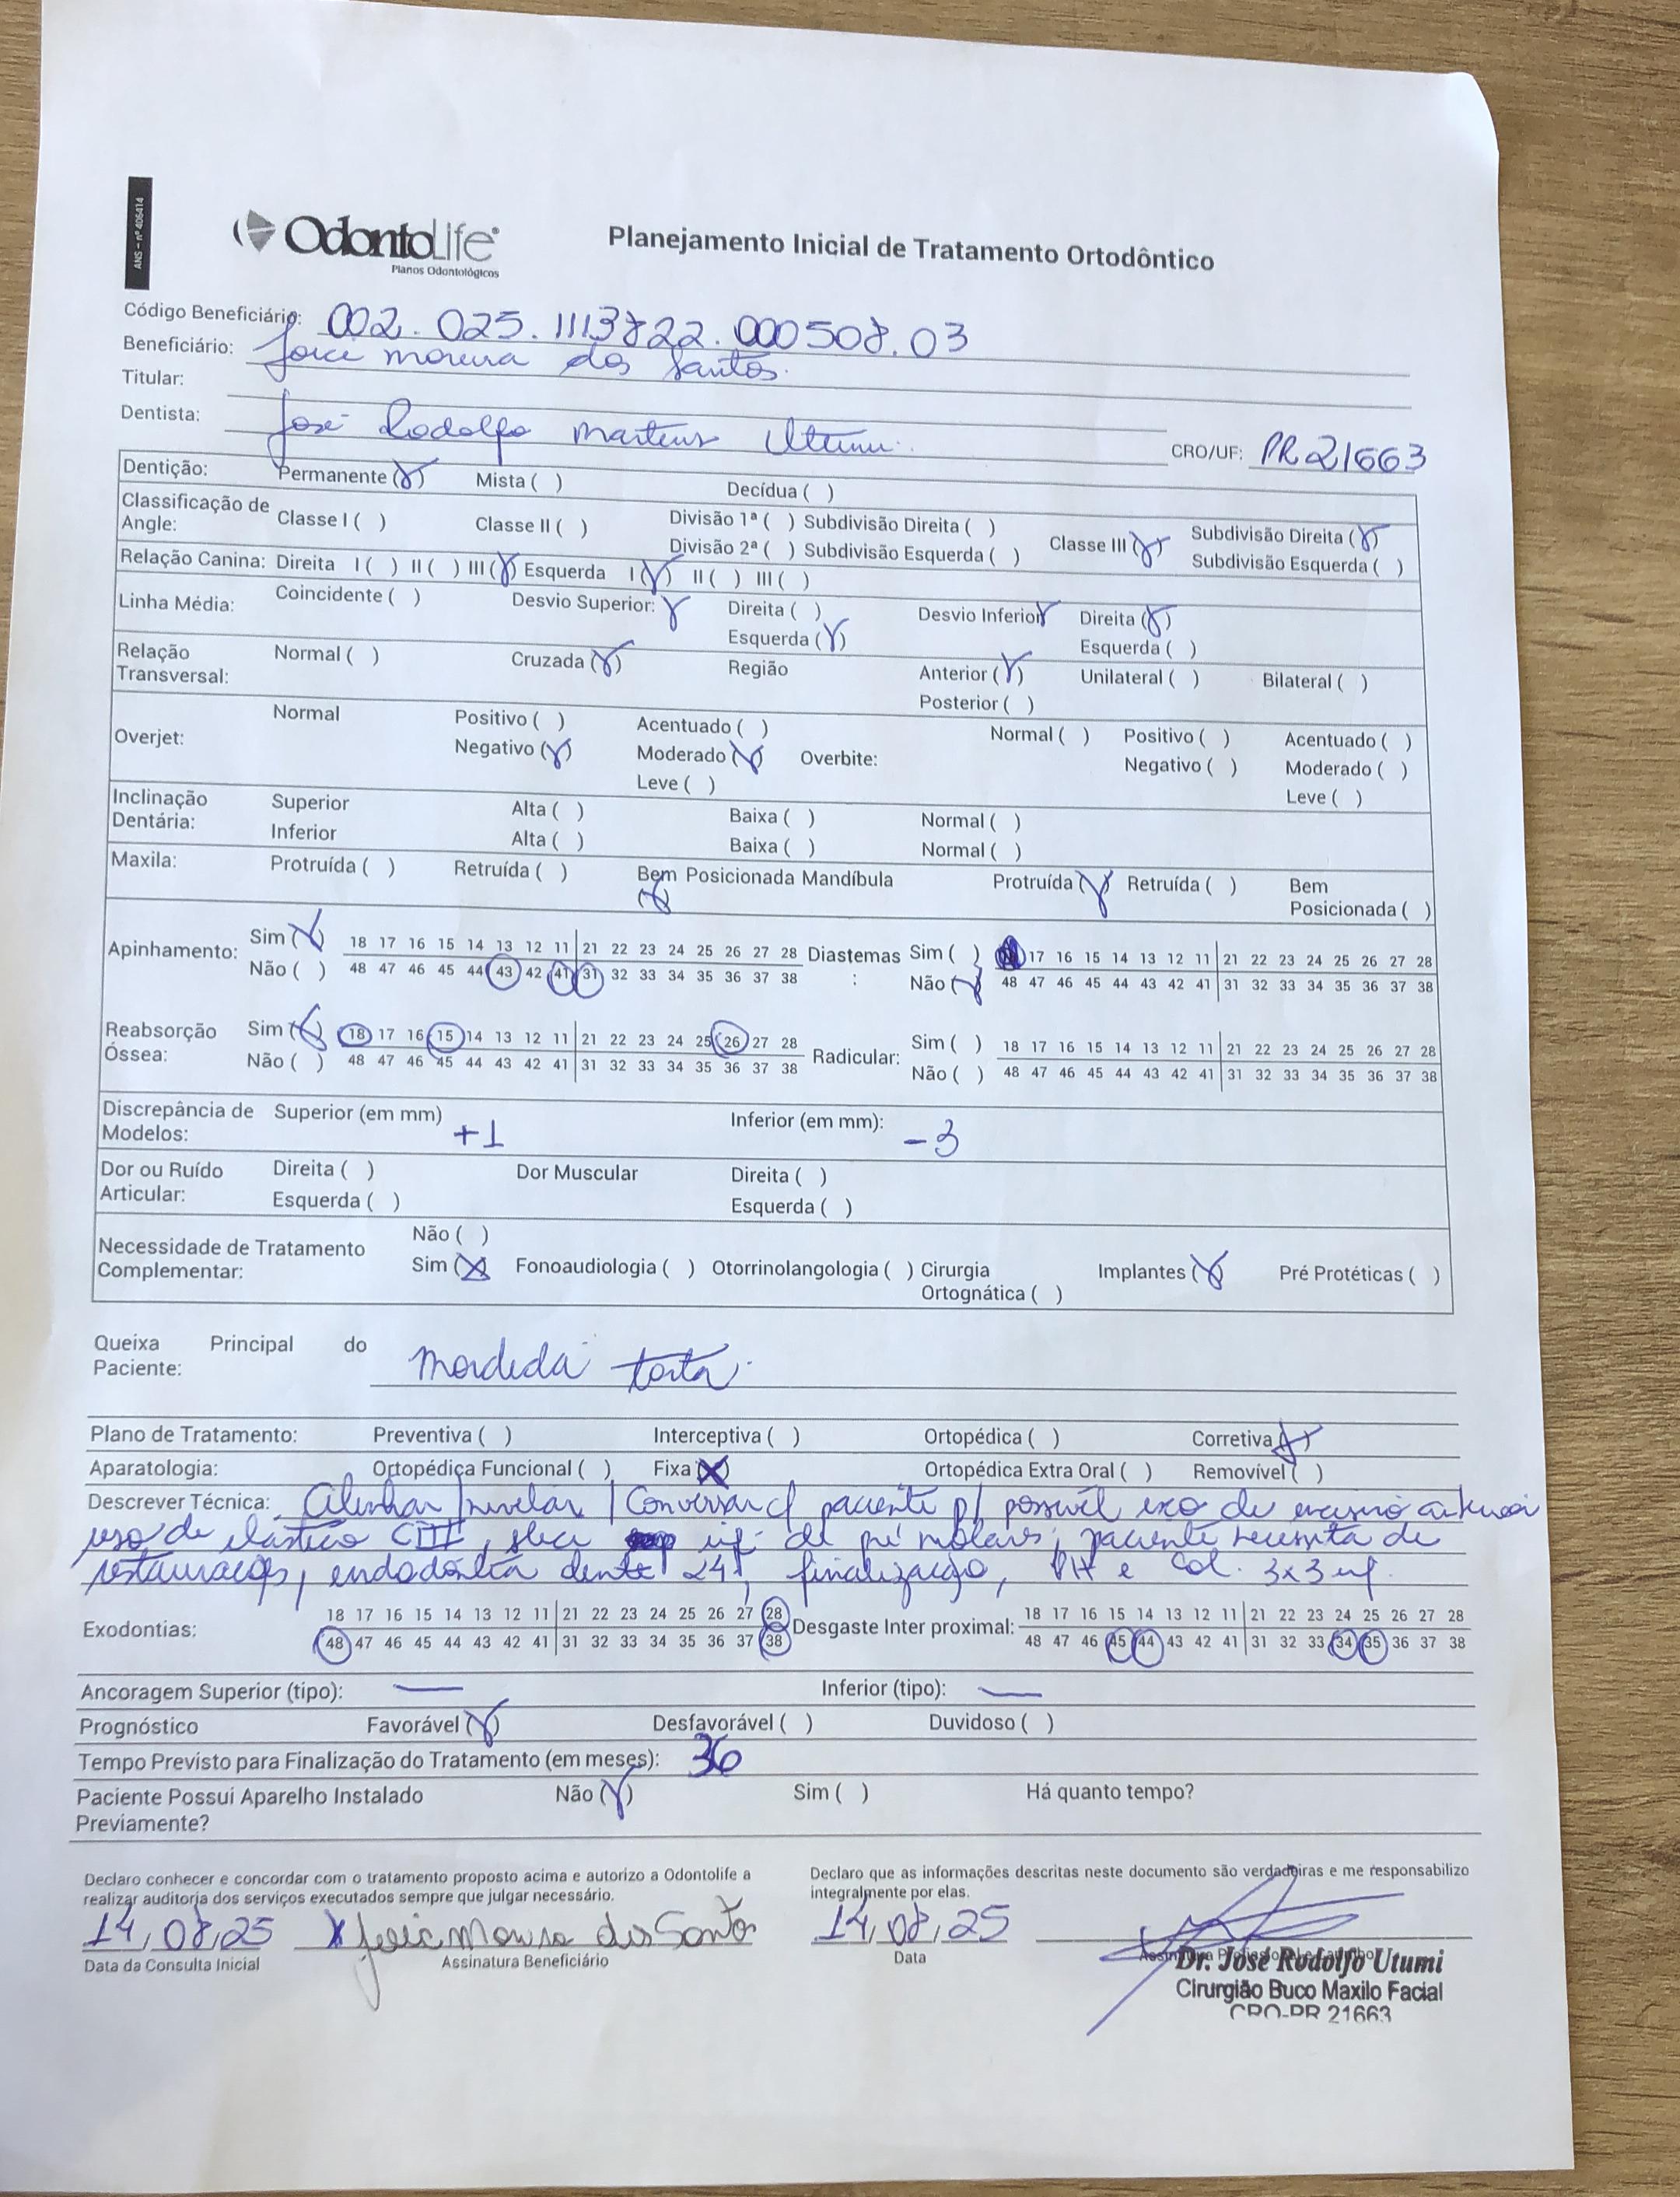 ANS - nº 406414
OdontoLife®
Planos Odontológicos
Planejamento Inicial de Tratamento Ortodôntico
Código Beneficiário: 002.025.1113822.000508.03
Beneficiário: Joice moreira dos Santos.
Titular:
Dentista: José Rodolfo Martins Utumi. CRO/UF: PR21663
Dentição: Permanente (X) Mista ( ) Decídua ( )
Classificação de Angle: Classe I ( ) Classe II ( ) Divisão 1ª ( ) Subdivisão Direita ( ) Divisão 2ª ( ) Subdivisão Esquerda ( ) Classe III (X) Subdivisão Direita (X) Subdivisão Esquerda ( )
Relação Canina: Direita I ( ) II ( ) III (X) Esquerda I (X) II ( ) III ( )
Linha Média: Coincidente ( ) Desvio Superior: X Direita ( ) Esquerda (X) Desvio Inferior X Direita (X) Esquerda ( )
Relação Transversal: Normal ( ) Cruzada (X) Região Anterior (X) Posterior ( ) Unilateral ( ) Bilateral ( )
Overjet: Normal Positivo ( ) Negativo (X) Acentuado ( ) Moderado (X) Leve ( ) Overbite: Normal ( ) Positivo ( ) Negativo ( ) Acentuado ( ) Moderado ( ) Leve ( )
Inclinação Dentária: Superior Alta ( ) Baixa ( ) Normal ( )
Inferior Alta ( ) Baixa ( ) Normal ( )
Maxila: Protruída ( ) Retruída ( ) Bem Posicionada (X) Mandíbula Protruída (X) Retruída ( ) Bem Posicionada ( )
Apinhamento: Sim (X) 18 17 16 15 14 13 12 11 21 22 23 24 25 26 27 28 Diastemas : Sim ( ) 17 16 15 14 13 12 11 21 22 23 24 25 26 27 28
Não ( ) 48 47 46 45 44 43 42 41 31 32 33 34 35 36 37 38 Não (X) 48 47 46 45 44 43 42 41 31 32 33 34 35 36 37 38
Reabsorção Óssea: Sim (X) 18 17 16 15 14 13 12 11 21 22 23 24 25 26 27 28 Radicular: Sim ( ) 18 17 16 15 14 13 12 11 21 22 23 24 25 26 27 28
Não ( ) 48 47 46 45 44 43 42 41 31 32 33 34 35 36 37 38 Não ( ) 48 47 46 45 44 43 42 41 31 32 33 34 35 36 37 38
Discrepância de Modelos: Superior (em mm) +1 Inferior (em mm): -3
Dor ou Ruído Articular: Direita ( ) Esquerda ( ) Dor Muscular Direita ( ) Esquerda ( )
Necessidade de Tratamento Complementar: Não ( ) Sim (X) Fonoaudiologia ( ) Otorrinolangologia ( ) Cirurgia Ortognática ( ) Implantes (X) Pré Protéticas ( )
Queixa Principal do Paciente: mordida torta.
Plano de Tratamento: Preventiva ( ) Interceptiva ( ) Ortopédica ( ) Corretiva (X)
Aparatologia: Ortopédica Funcional ( ) Fixa (X) Ortopédica Extra Oral ( ) Removível ( )
Descrever Técnica: Alinhar / nivelar / Conversar c/ paciente p/ possível exo de incisivo
uso de elástico CIII, slice inf. de pré molares; paciente necessita de
restaurações, endodontia dente 24, finalização, e Col. 3x3 inf.
Exodontias: 18 17 16 15 14 13 12 11 21 22 23 24 25 26 27 28 Desgaste Inter proximal: 18 17 16 15 14 13 12 11 21 22 23 24 25 26 27 28
48 47 46 45 44 43 42 41 31 32 33 34 35 36 37 38 48 47 46 45 44 43 42 41 31 32 33 34 35 36 37 38
Ancoragem Superior (tipo): — Inferior (tipo): —
Prognóstico Favorável (X) Desfavorável ( ) Duvidoso ( )
Tempo Previsto para Finalização do Tratamento (em meses): 36
Paciente Possui Aparelho Instalado Previamente? Não (X) Sim ( ) Há quanto tempo?
Declaro conhecer e concordar com o tratamento proposto acima e autorizo a Odontolife a
realizar auditoria dos serviços executados sempre que julgar necessário.
Declaro que as informações descritas neste documento são verdadeiras e me responsabilizo
integralmente por elas.
14,08,25 X Joice Moreira dos Santos 14,08,25
Data da Consulta Inicial Assinatura Beneficiário Data
Dr. José Rodolfo Utumi
Cirurgião Buco Maxilo Facial
CRO-PR 21663